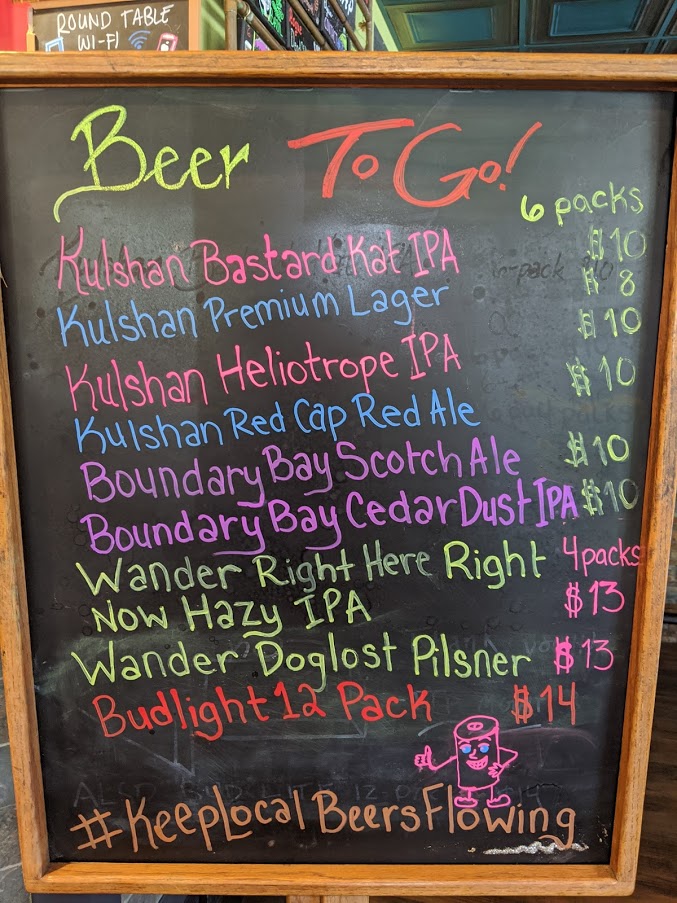 ROUND TABLE
WI-FI
Beer To Go!
6 packs
Kulshan Bastard Kat IPA $10
Kulshan Premium Lager $8
Kulshan Heliotrope IPA $10
Kulshan Red Cap Red Ale $10
Boundary Bay Scotch Ale $10
Boundary Bay Cedar Dust IPA $10
Wander Right Here Right 4packs
Now Hazy IPA $13
Wander Doglost Pilsner $13
Budlight 12 Pack $14
#KeepLocalBeersFlowing